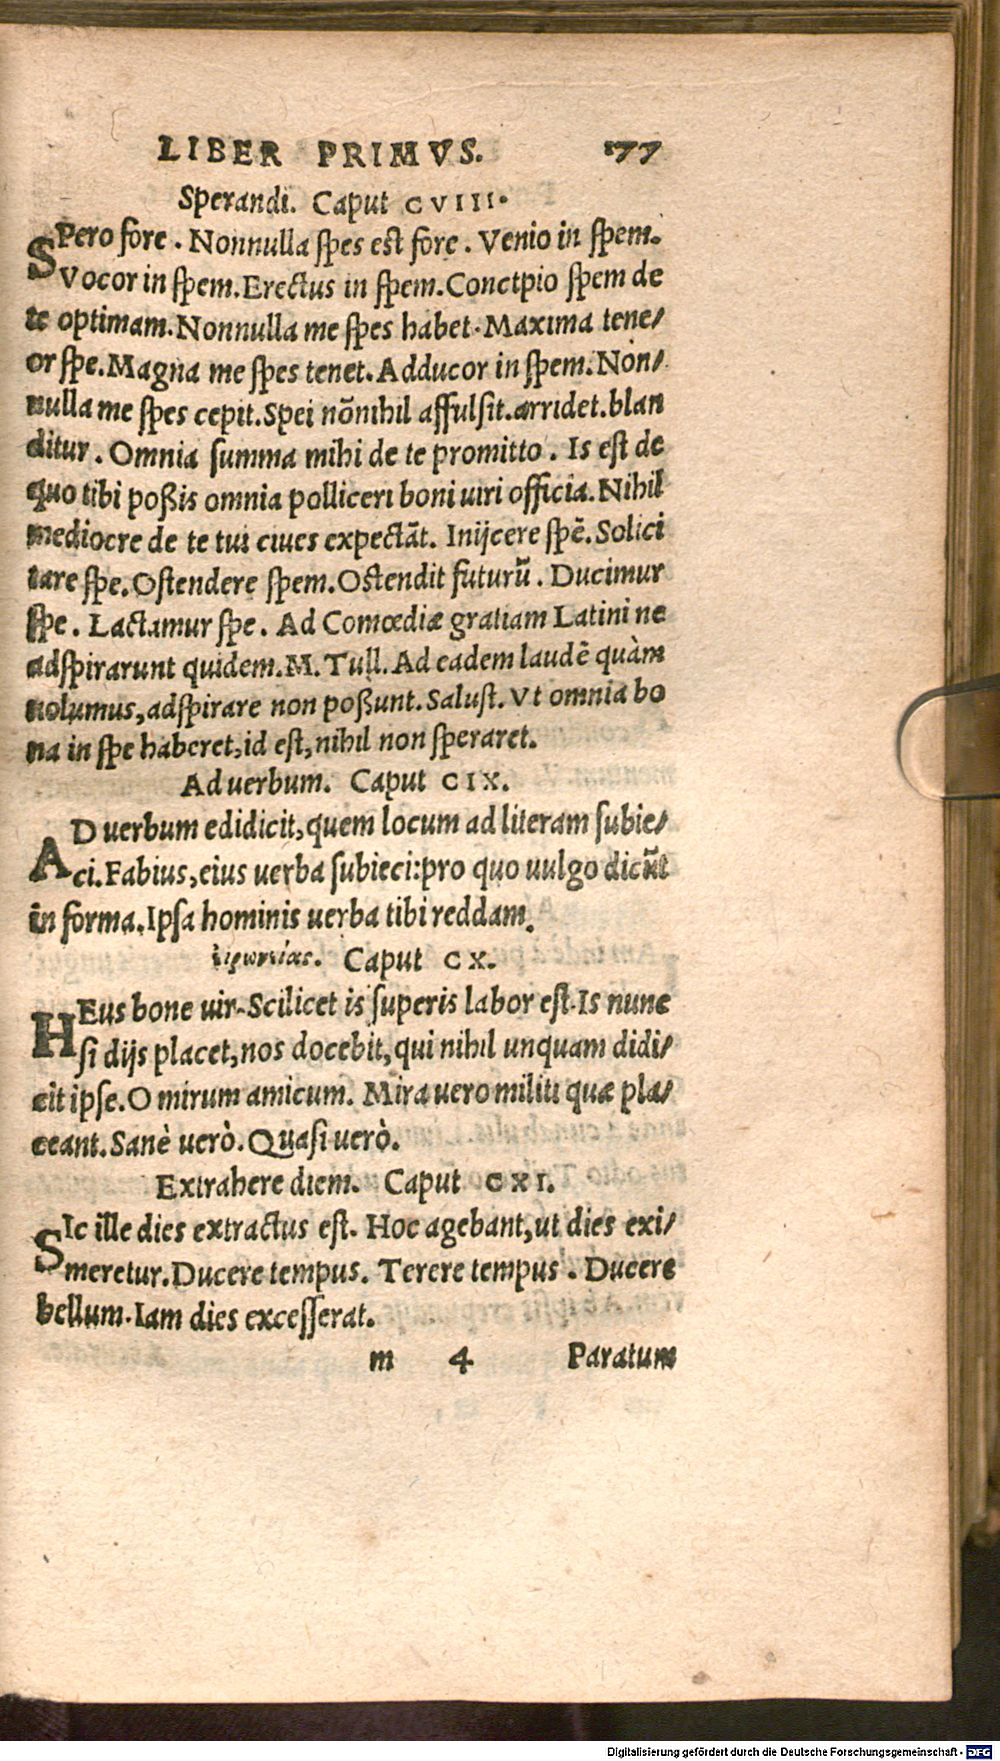 LIBER PRIMVS. 177
Sperandi. Caput CVIII.
SPero fore. Nonnulla spes est fore. Venio in spem.
Vocor in spem. Erectus in spem. Conctpio spem de
te optimam. Nonnulla me spes habet. Maxima tene/
or spe. Magna me spes tenet. Adducor in spem. Non/
nulla me spes cepit. Spei nõnihil affulsit. arridet. blan
ditur. Omnia summa mihi de te promitto. Is est de
quo tibi poßis omnia polliceri boni uiri officia. Nihil
mediocre de te tui ciues expectãt. Inijcere spẽ. Solici
tare spe. Ostendere spem. Ostendit futurũ. Ducimur
spe. Lactamur spe. Ad Comœdiæ gratiam Latini ne
adspirarunt quidem. M. Tull. Ad eadem laudẽ quàm
uolumus, adspirare non poßunt. Salust. Vt omnia bo
na in spe haberet, id est, nihil non speraret.
Ad uerbum. Caput CIX.
AD uerbum edidicit, quem locum ad literam subie/
ci. Fabius, eius uerba subieci: pro quo uulgo dicũt
in forma. Ipsa hominis uerba tibi reddam.
εἰρωνείας. Caput CX.
HEus bone uir. Scilicet is superis labor est. Is nunc
si dijs placet, nos docebit, qui nihil unquam didi/
cit ipse. O mirum amicum. Mira uero militi quæ pla/
ceant. Sanè uerò. Quasi uerò.
Extrahere diem. Caput CXI.
SIc ille dies extractus est. Hoc agebant, ut dies exi/
meretur. Ducere tempus. Terere tempus. Ducere
bellum. Iam dies excesserat.
m 4 Paratum
Digitalisierung gefördert durch die Deutsche Forschungsgemeinschaft - DFG